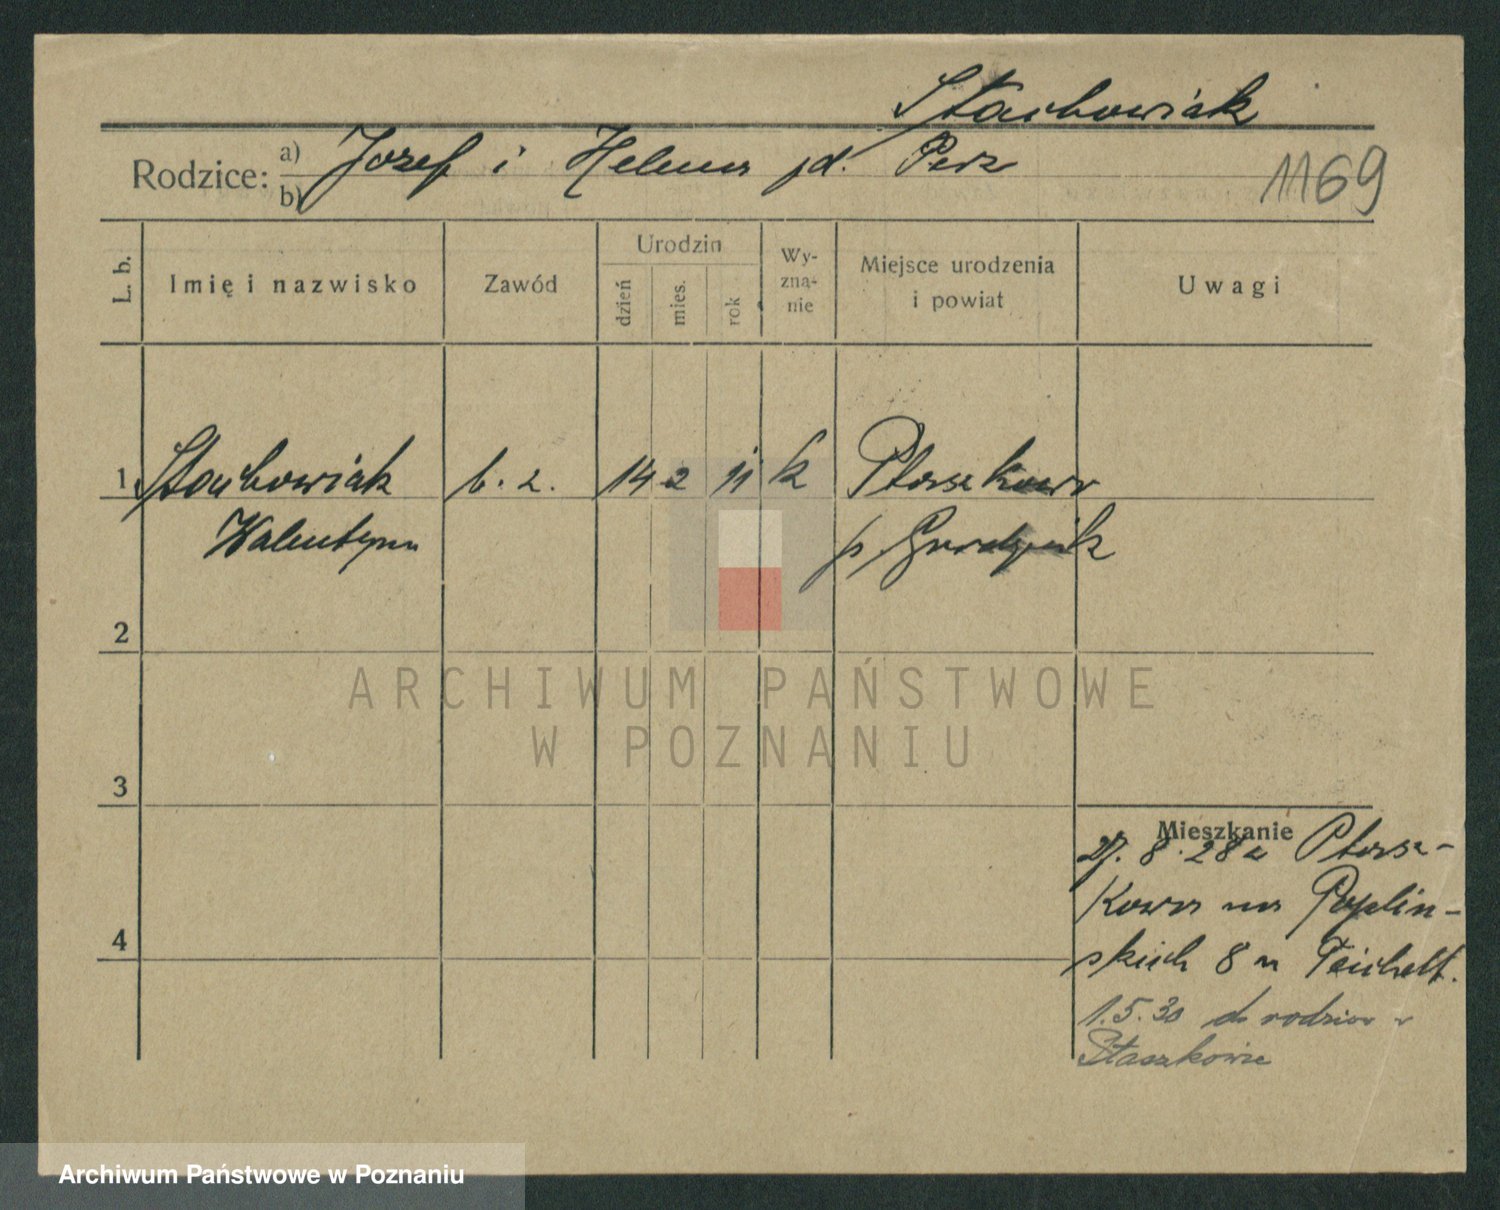 Stachowiak
Rodzice: a) b) Józef i Helena z d. Perz
1169
L. b.
Imię i nazwisko
Zawód
Urodzin
dzień
mies.
rok
Wy-
zna-
nie
Miejsce urodzenia
i powiat
Uwagi
1 Stachowiak b. z. 14 2 11 k Ptaszkowo
Walentyna p. Grodzisk
2
ARCHIWUM PAŃSTWOWE
W POZNANIU
3
Mieszkanie
27. 8. 28 z Ptasz-
kowa na Poplin-
skich 8 u Teichelt.
4
1.5.30 do rodziców w
Ptaszkowie
Archiwum Państwowe w Poznaniu